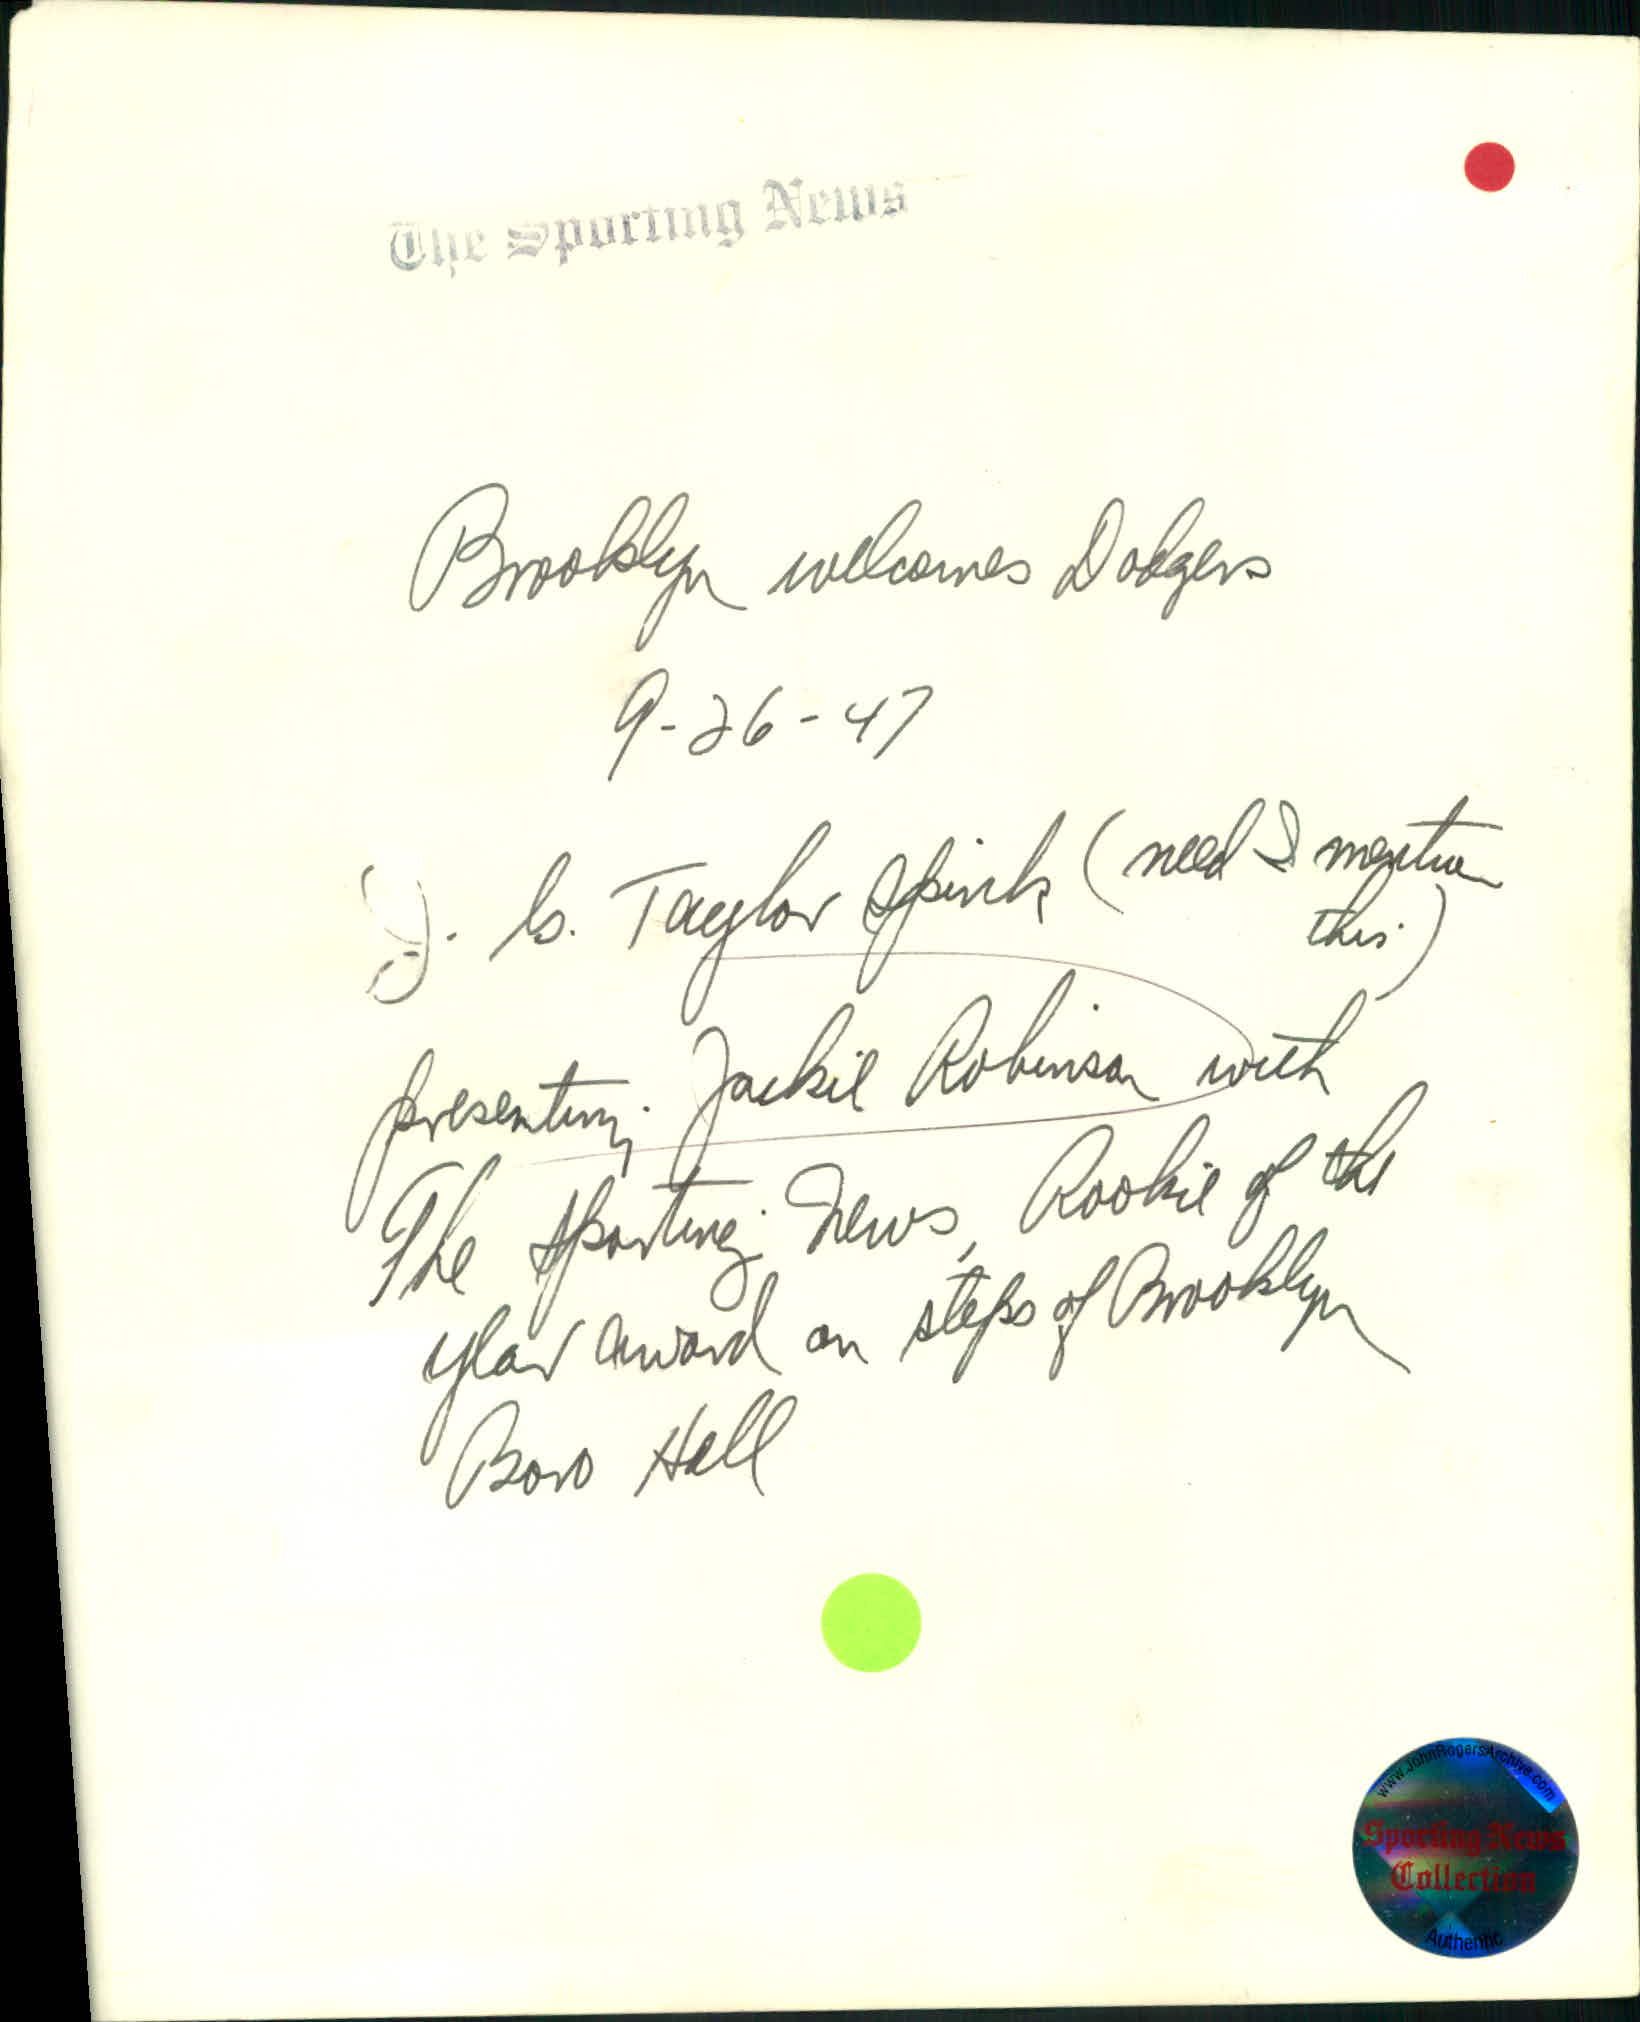 The Sporting News
Brooklyn welcomes Dodgers
9-26-47
J. G. Taylor Spink (need I mention
this)
presenting Jackie Robinson with
The Sporting News, Rookie of the
year award on steps of Brooklyn
Boro Hall
www.JohnRogersArchive.com
Sporting News
Collection
Authentic